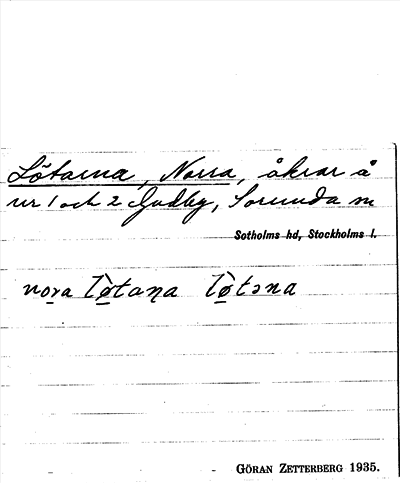 Lötarna, Norra, åkrar å
nr 1 och 2 Gudby, Sorunda sn
Sotholms hd, Stockholms l.
nora lòtaṇa lòtɔna
GÖRAN ZETTERBERG 1935.